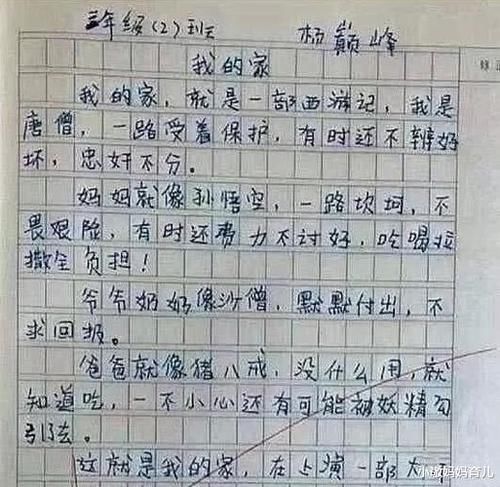 三年级(2)班 杨巅峰
我的家
我的家，就是一部西游记，我是
唐僧，一路受着保护，有时还不辨好
坏，忠奸不分。
妈妈就像孙悟空，一路坎坷，不
畏艰险，有时还费力不讨好，吃喝拉
撒全负担！
爷爷奶奶像沙僧，默默付出，不
求回报。
爸爸就像猪八戒，没什么用，就
知道吃，一不小心还有可能被妖精勾
引去。
这就是我的家，在上演一部
小傲妈妈育儿